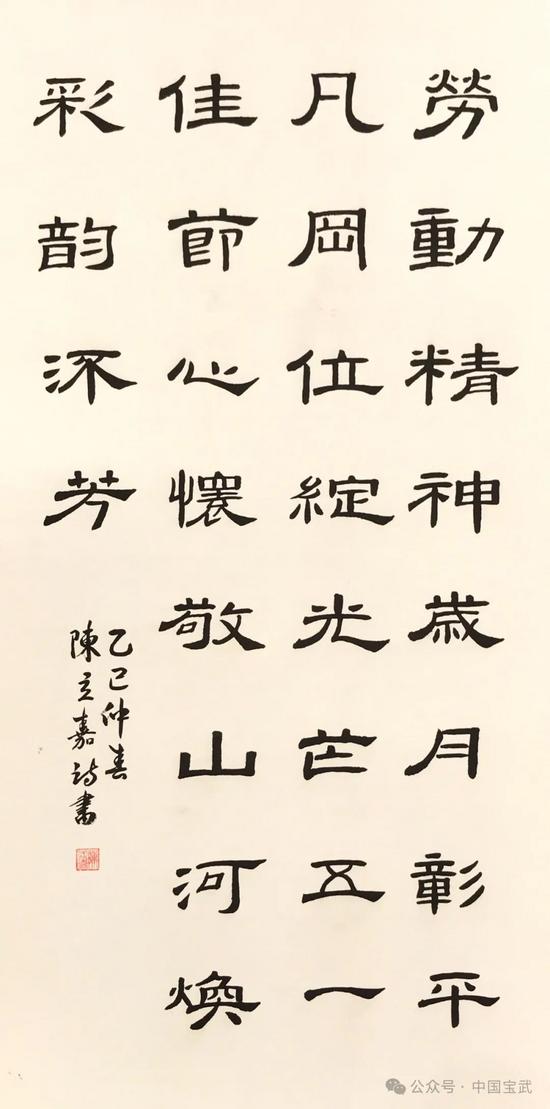 勞動精神歲月彰平
凡岡位綻光芒五一
佳節心懷敬山河煥
彩韵㳅芳
乙巳仲春
陳立嘉詩書
公众号 · 中国宝武